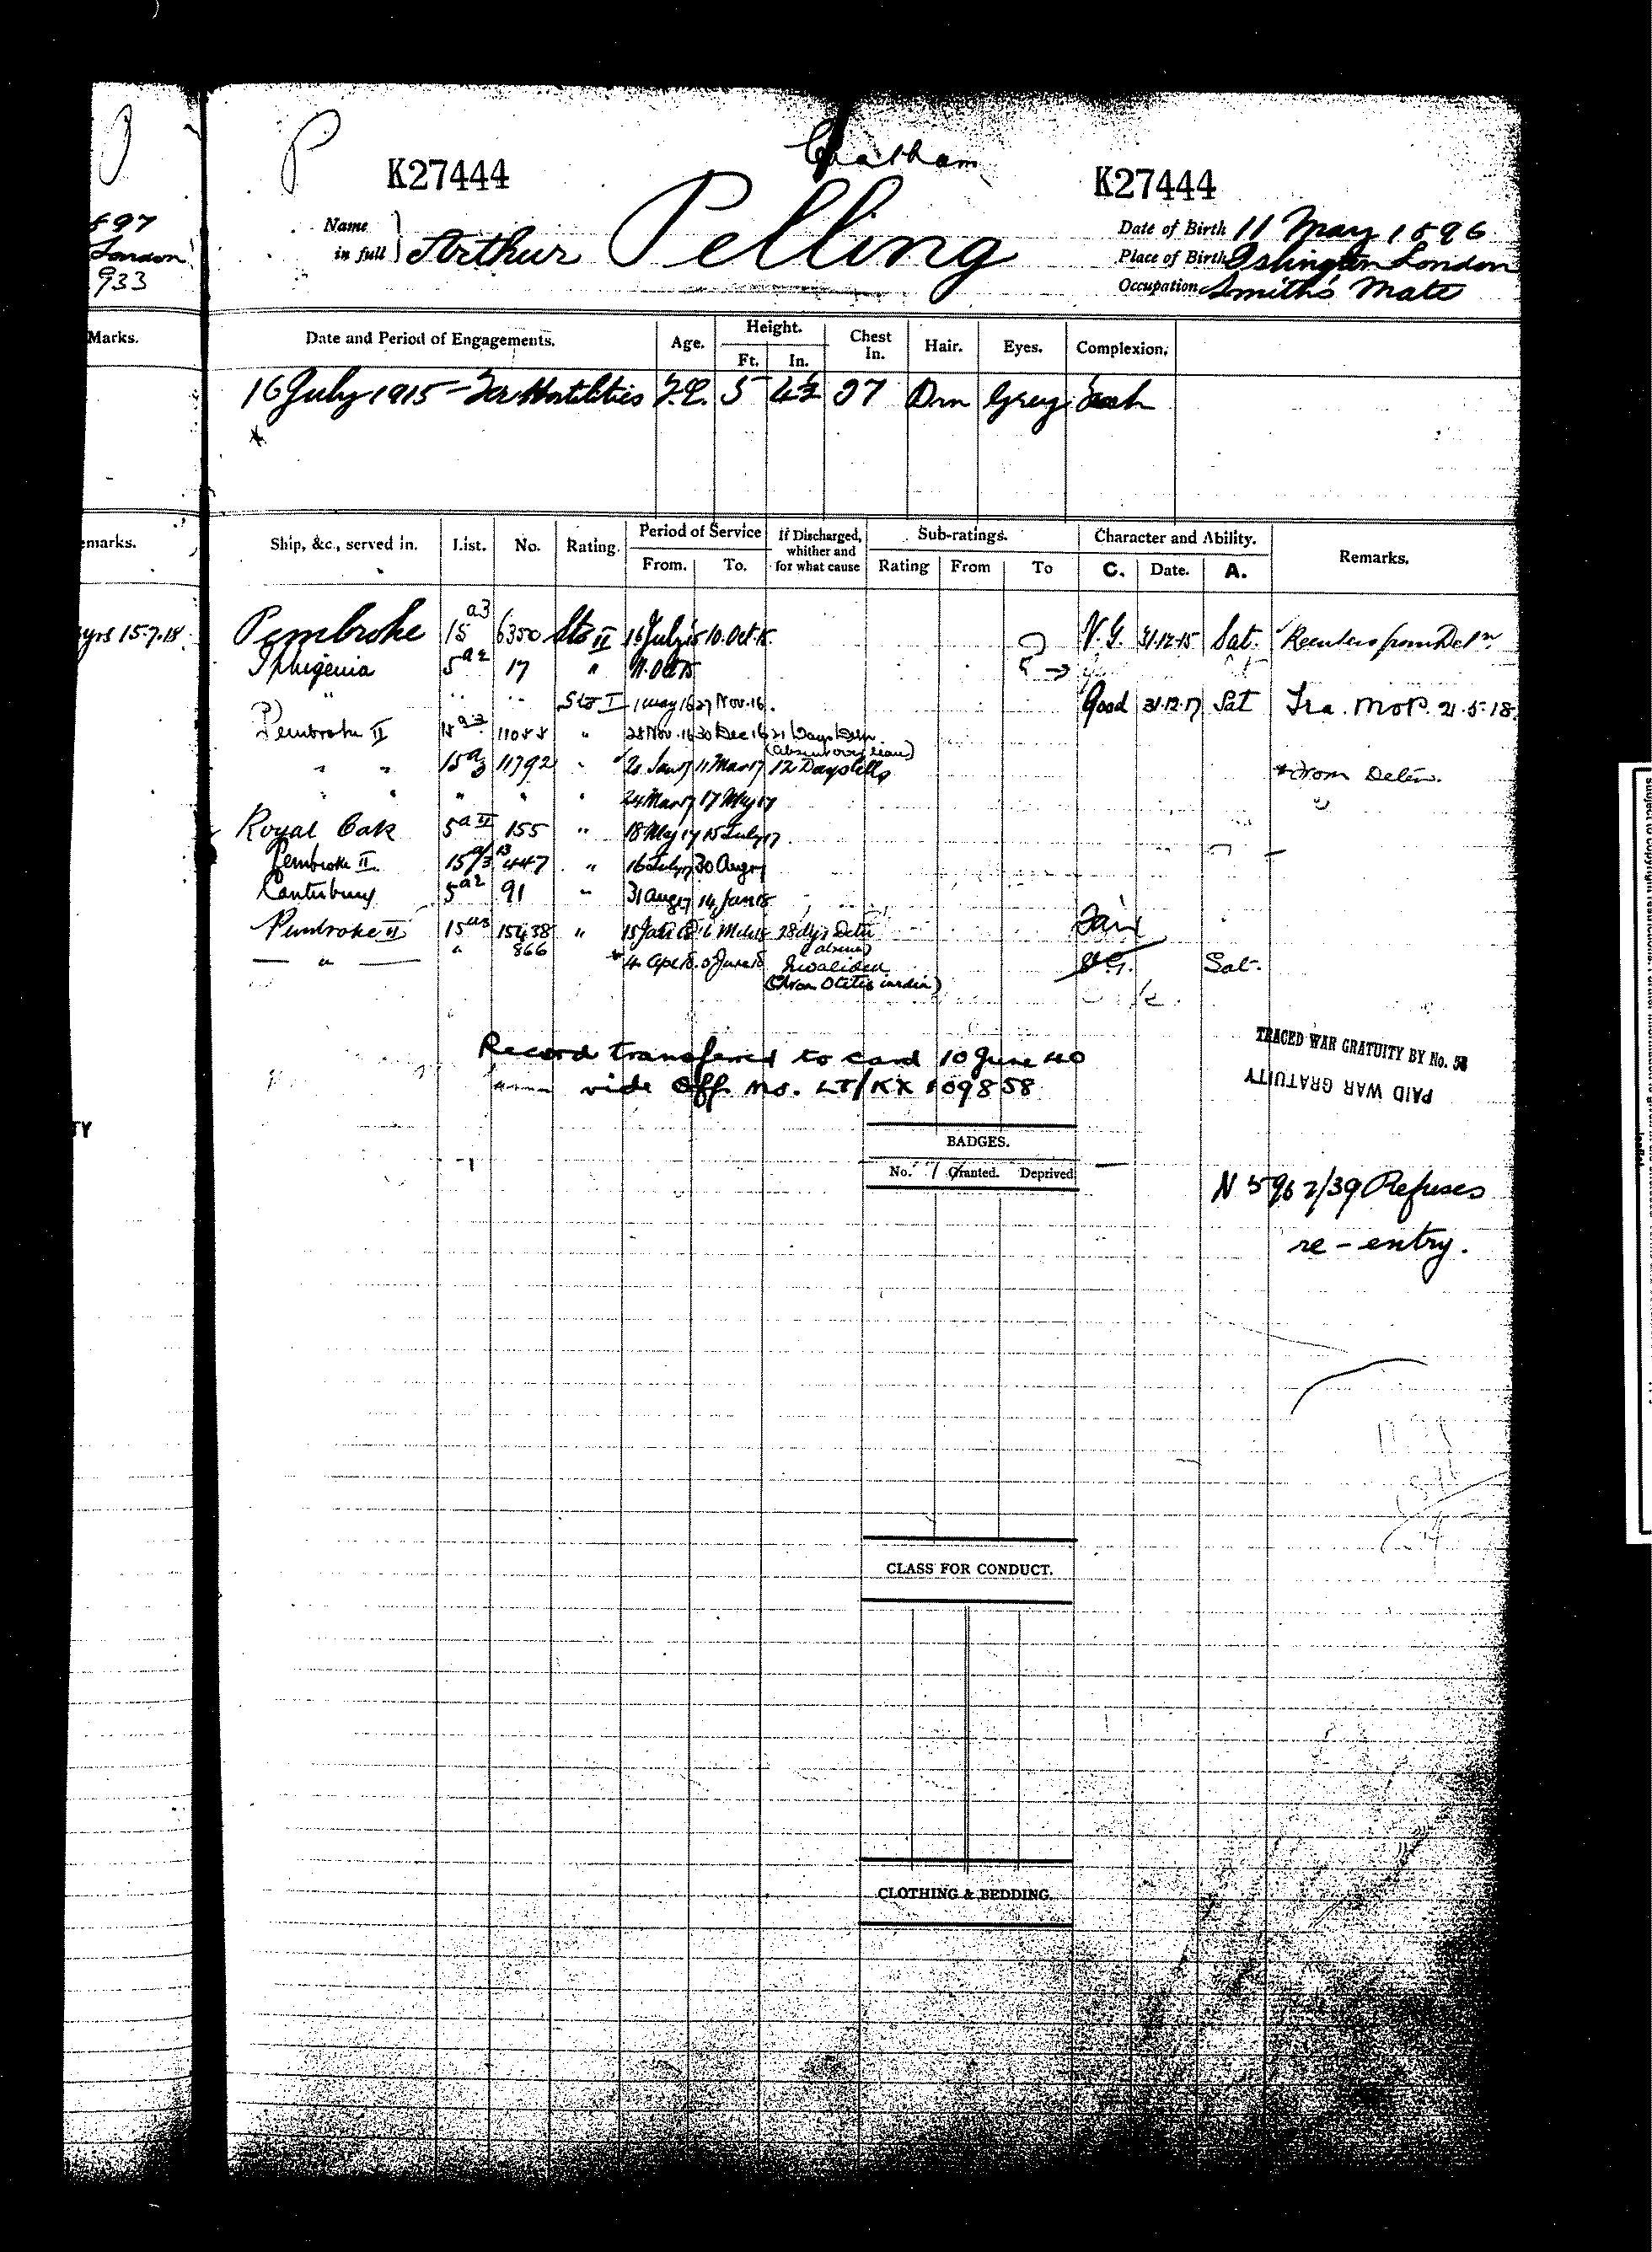 K27444
Chatham
K27444
Name in full Arthur Pelling
Date of Birth 11 May 1896
Place of Birth Islington London
Occupation Smith's Mate
897
London
933
Marks.
Date and Period of Engagements. Age. Height. Ft. In. Chest In. Hair. Eyes. Complexion.
16 July 1915 - For Hostilities 5 4½ 37 Brn Grey Fresh
*
Ship, &c., served in. List. No. Rating. Period of Service From. To. If Discharged, whither and for what cause Sub-ratings. Rating From To Character and Ability. C. Date. A. Remarks.
yrs 15.7.18
Pembroke 15 a3 6350 Sto II 16 July 15 10 Oct 15 V.G. 31.12.15 Sat. Reenters from Detn
Iphigenia 5 a2 17 " 11 Oct 15
" " " Sto I 1 May 16 27 Nov. 16. Good 31.12.17 Sat Tra. MOP. 21.5.18.
Pembroke II 15 a3 11088 " 28 Nov. 16 30 Dec 16 21 Days Detn (absent over leave)
" " 15 a3 11792 " 21 Jan 17 11 Mar 17 12 Days Cells *From Detn.
" " " " " 24 Mar 17 17 May 17
Royal Oak 5 a II 155 " 18 May 17 15 July 17
Pembroke II 15 a/3 447 " 16 July 17 30 Aug 17
Canterbury 5 a2 91 " 31 Aug 17 14 Jan 18
Pembroke II 15 a3 15438 " 15 Jan 18 28 dys Detn (absence) Fair
" " 866 * 4 Apl 18. June 18 Invalided V.G. Sat.
(Chron Otitis media)
Record transferred to card 10 June 40
vide Off. no. LT/KX 109858
TRACED WAR GRATUITY BY No. 58
PAID WAR GRATUITY
BADGES.
No. Granted. Deprived
N 5962/39 Refuses
re-entry.
CLASS FOR CONDUCT.
CLOTHING & BEDDING.